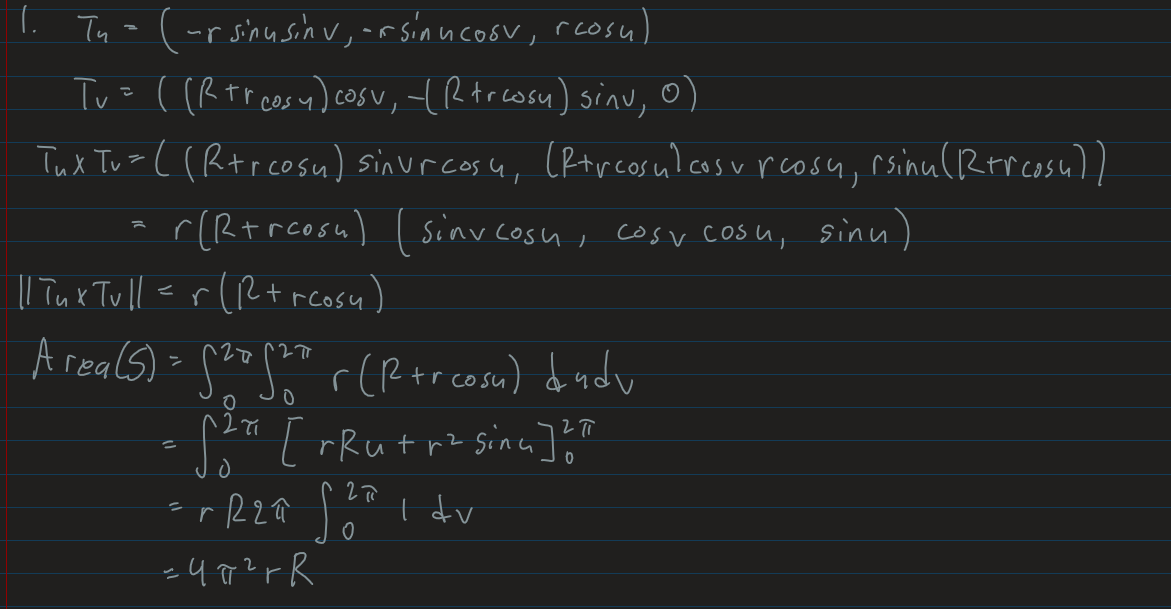 1. Tu = (-r sinu sinv, -r sinu cosv, r cosu)
Tv = ((R+r cosu) cosv, -(R+r cosu) sinv, 0)
Tu x Tv = ((R+r cosu) sinv r cosu, (R+r cosu) cosv r cosu, r sinu (R+r cosu))
= r(R+r cosu) (sinv cosu, cosv cosu, sinu)
||Tu x Tv|| = r(R+r cosu)
Area(S) = ∫₀^2π ∫₀^2π r(R+r cosu) du dv
= ∫₀^2π [rRu + r² sinu]₀^2π
= rR2π ∫₀^2π 1 dv
= 4π²rR